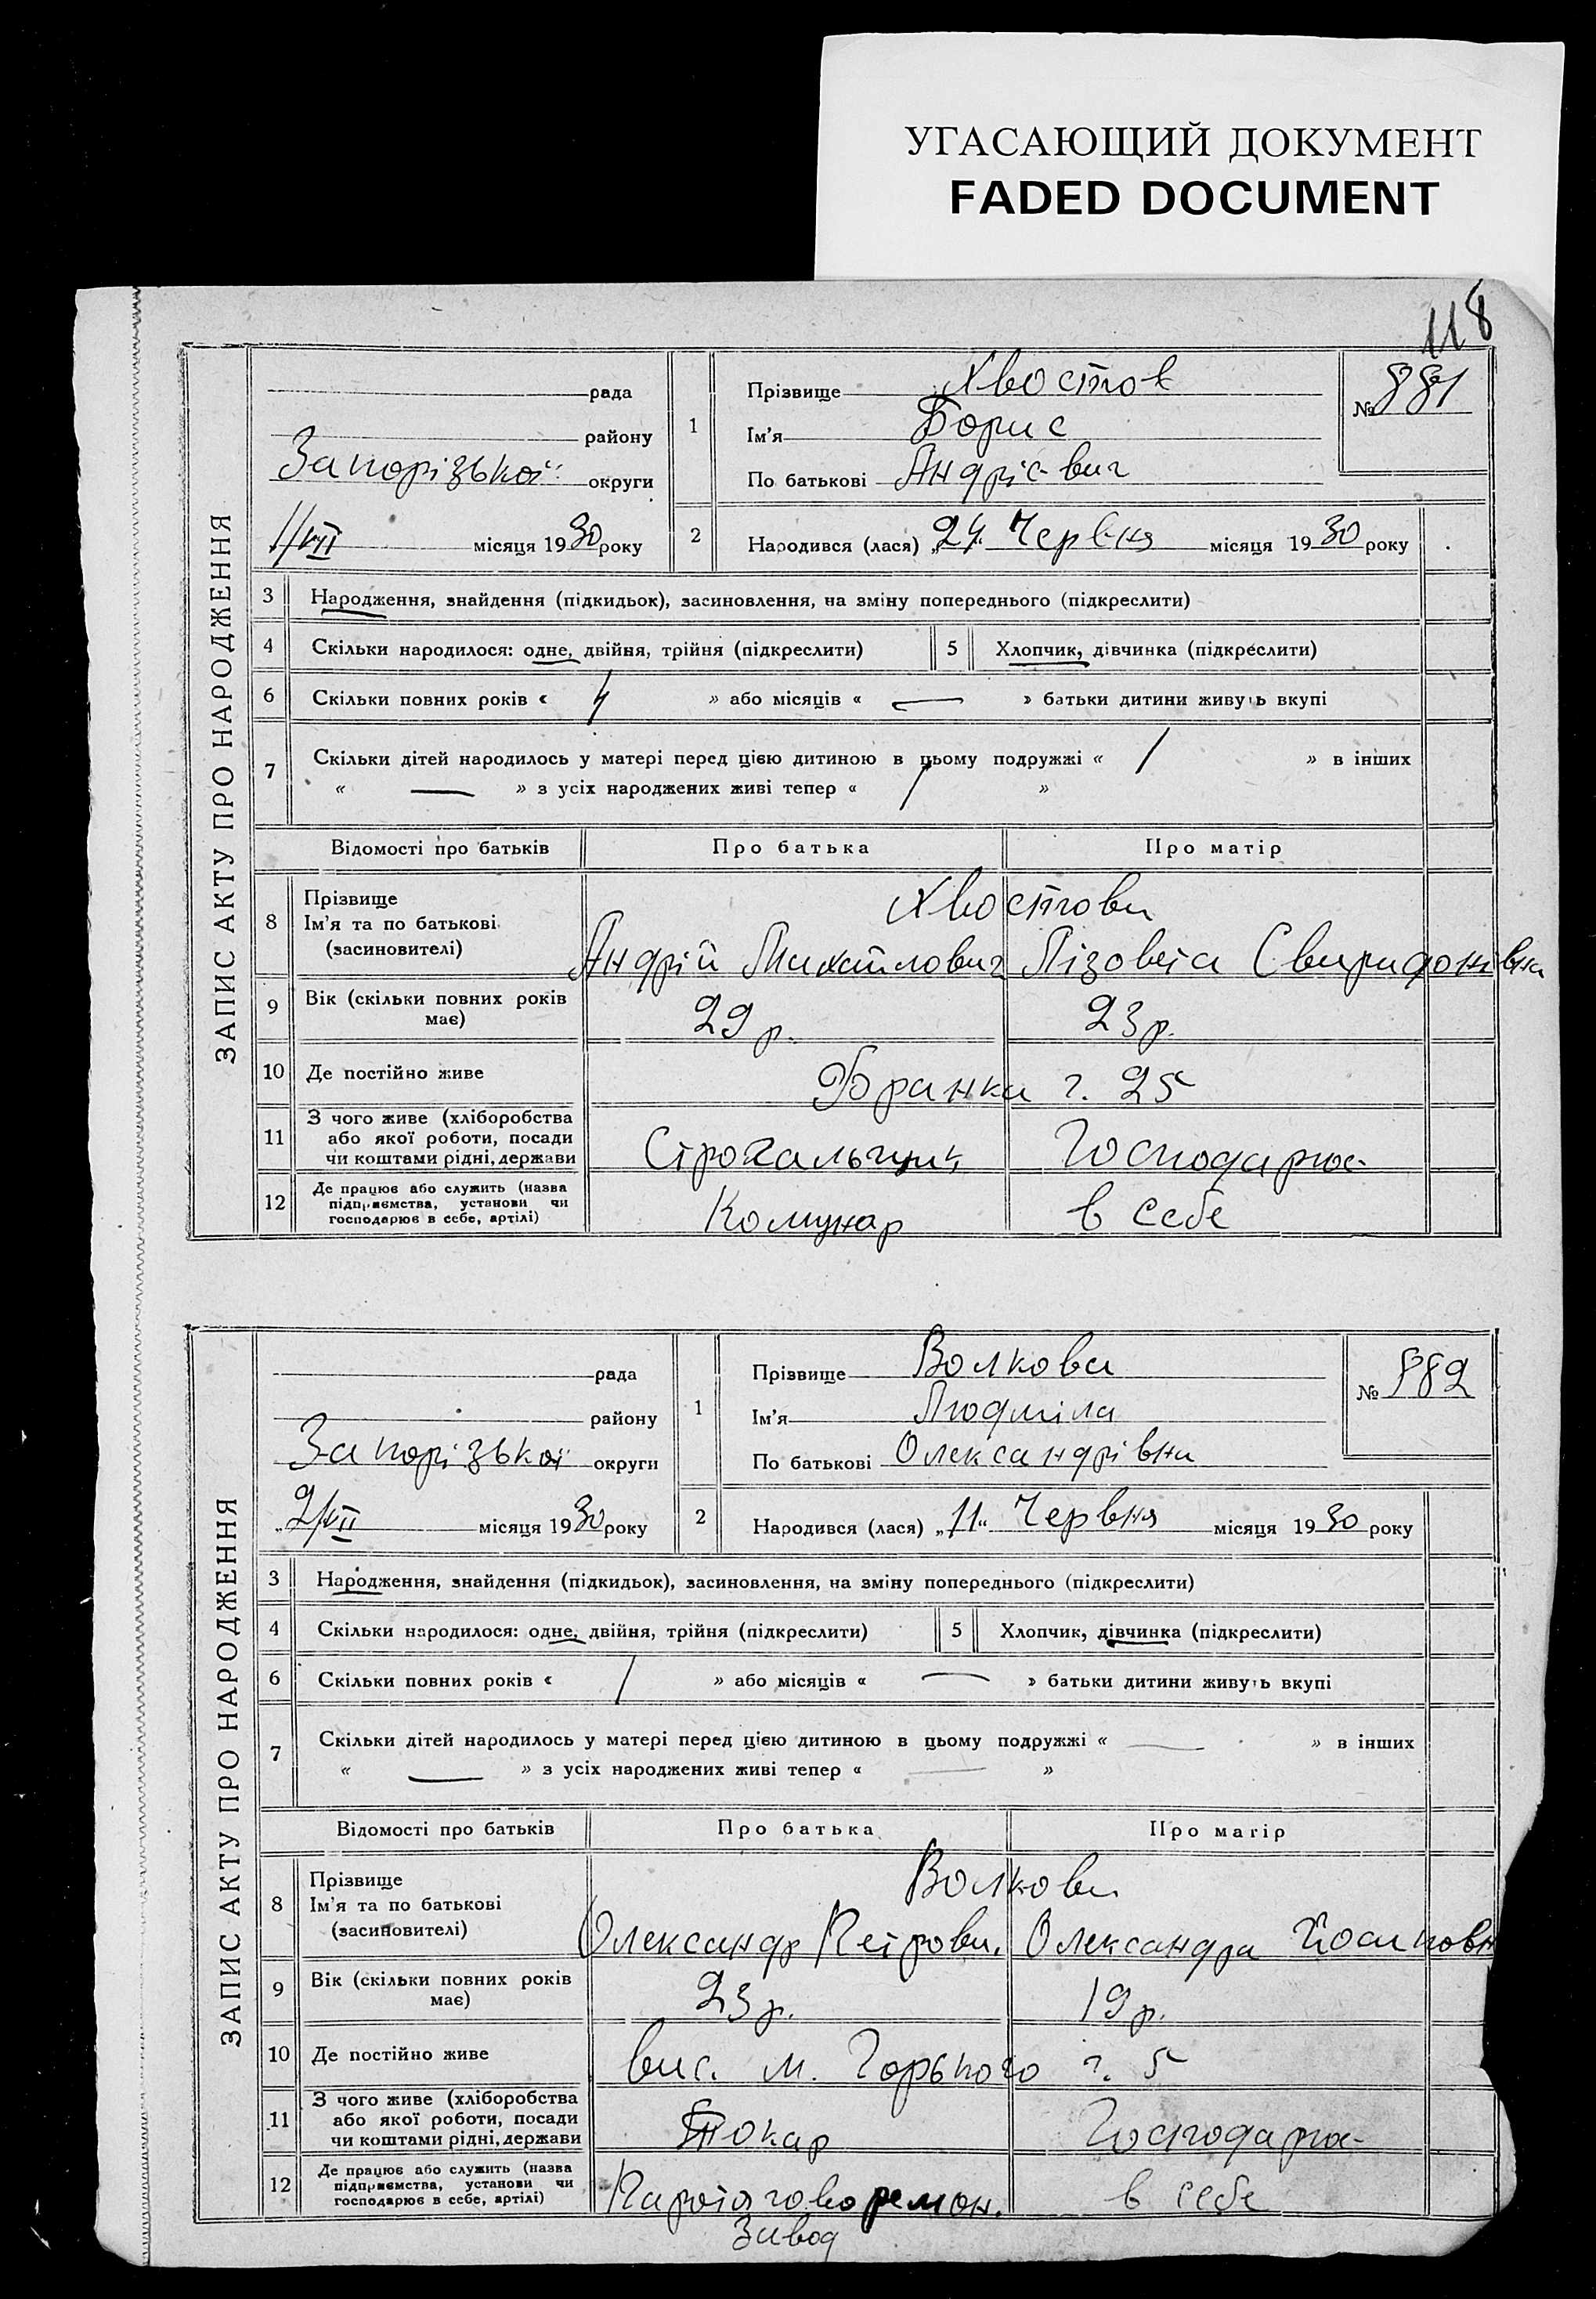 УГАСАЮЩИЙ ДОКУМЕНТ
FADED DOCUMENT
118
ЗАПИС АКТУ ПРО НАРОДЖЕННЯ
рада
району
Запорізької округи
1/VII місяця 1930 року
1 Прізвище Хвостов
Ім'я Борис
По батькові Андрієвич
№ 881
2 Народився (лася) „24 Червня місяця 1930 року
3 Народження, знайдення (підкидьок), засиновлення, на зміну попереднього (підкреслити)
4 Скільки народилося: одне, двійня, трійня (підкреслити) 5 Хлопчик, дівчинка (підкреслити)
6 Скільки повних років « 4 » або місяців « — » батьки дитини живуть вкупі
7 Скільки дітей народилось у матері перед цією дитиною в цьому подружжі « 1 » в інших
« — » з усіх народжених живі тепер « 1 »
Відомості про батьків Про батька Про матір
8 Прізвище
Ім'я та по батькові
(засиновителі)
Хвостови
Андрій Михайлович Лізовета Свиридонівна
9 Вік (скільки повних років
має)
29 р. 23 р.
10 Де постійно живе Франка г. 25
11 З чого живе (хліборобства
або якої роботи, посади
чи коштами рідні, держави
Строгальщик Господарює
12 Де працює або служить (назва
підприємства, установи чи
господарює в себе, артілі)
Комунар в себе
ЗАПИС АКТУ ПРО НАРОДЖЕННЯ
рада
району
Запорізької округи
„2/VII місяця 1930 року
1 Прізвище Волкова
Ім'я Людміла
По батькові Олександрівна
№ 882
2 Народився (лася) „11“ Червня місяця 1930 року
3 Народження, знайдення (підкидьок), засиновлення, на зміну попереднього (підкреслити)
4 Скільки народилося: одне, двійня, трійня (підкреслити) 5 Хлопчик, дівчинка (підкреслити)
6 Скільки повних років « 1 » або місяців « — » батьки дитини живуть вкупі
7 Скільки дітей народилось у матері перед цією дитиною в цьому подружжі « — » в інших
« — » з усіх народжених живі тепер « — »
Відомості про батьків Про батька Про матір
8 Прізвище
Ім'я та по батькові
(засиновителі)
Волкови
Олександр Петрови. Олександра Йосиповн
9 Вік (скільки повних років
має)
23 р. 19 р.
10 Де постійно живе вис. м. Горького г. 5
11 З чого живе (хліборобства
або якої роботи, посади
чи коштами рідні, держави
Токар Господарює
12 Де працює або служить (назва
підприємства, установи чи
господарює в себе, артілі)
Паротяговоремон. в себе
Завод